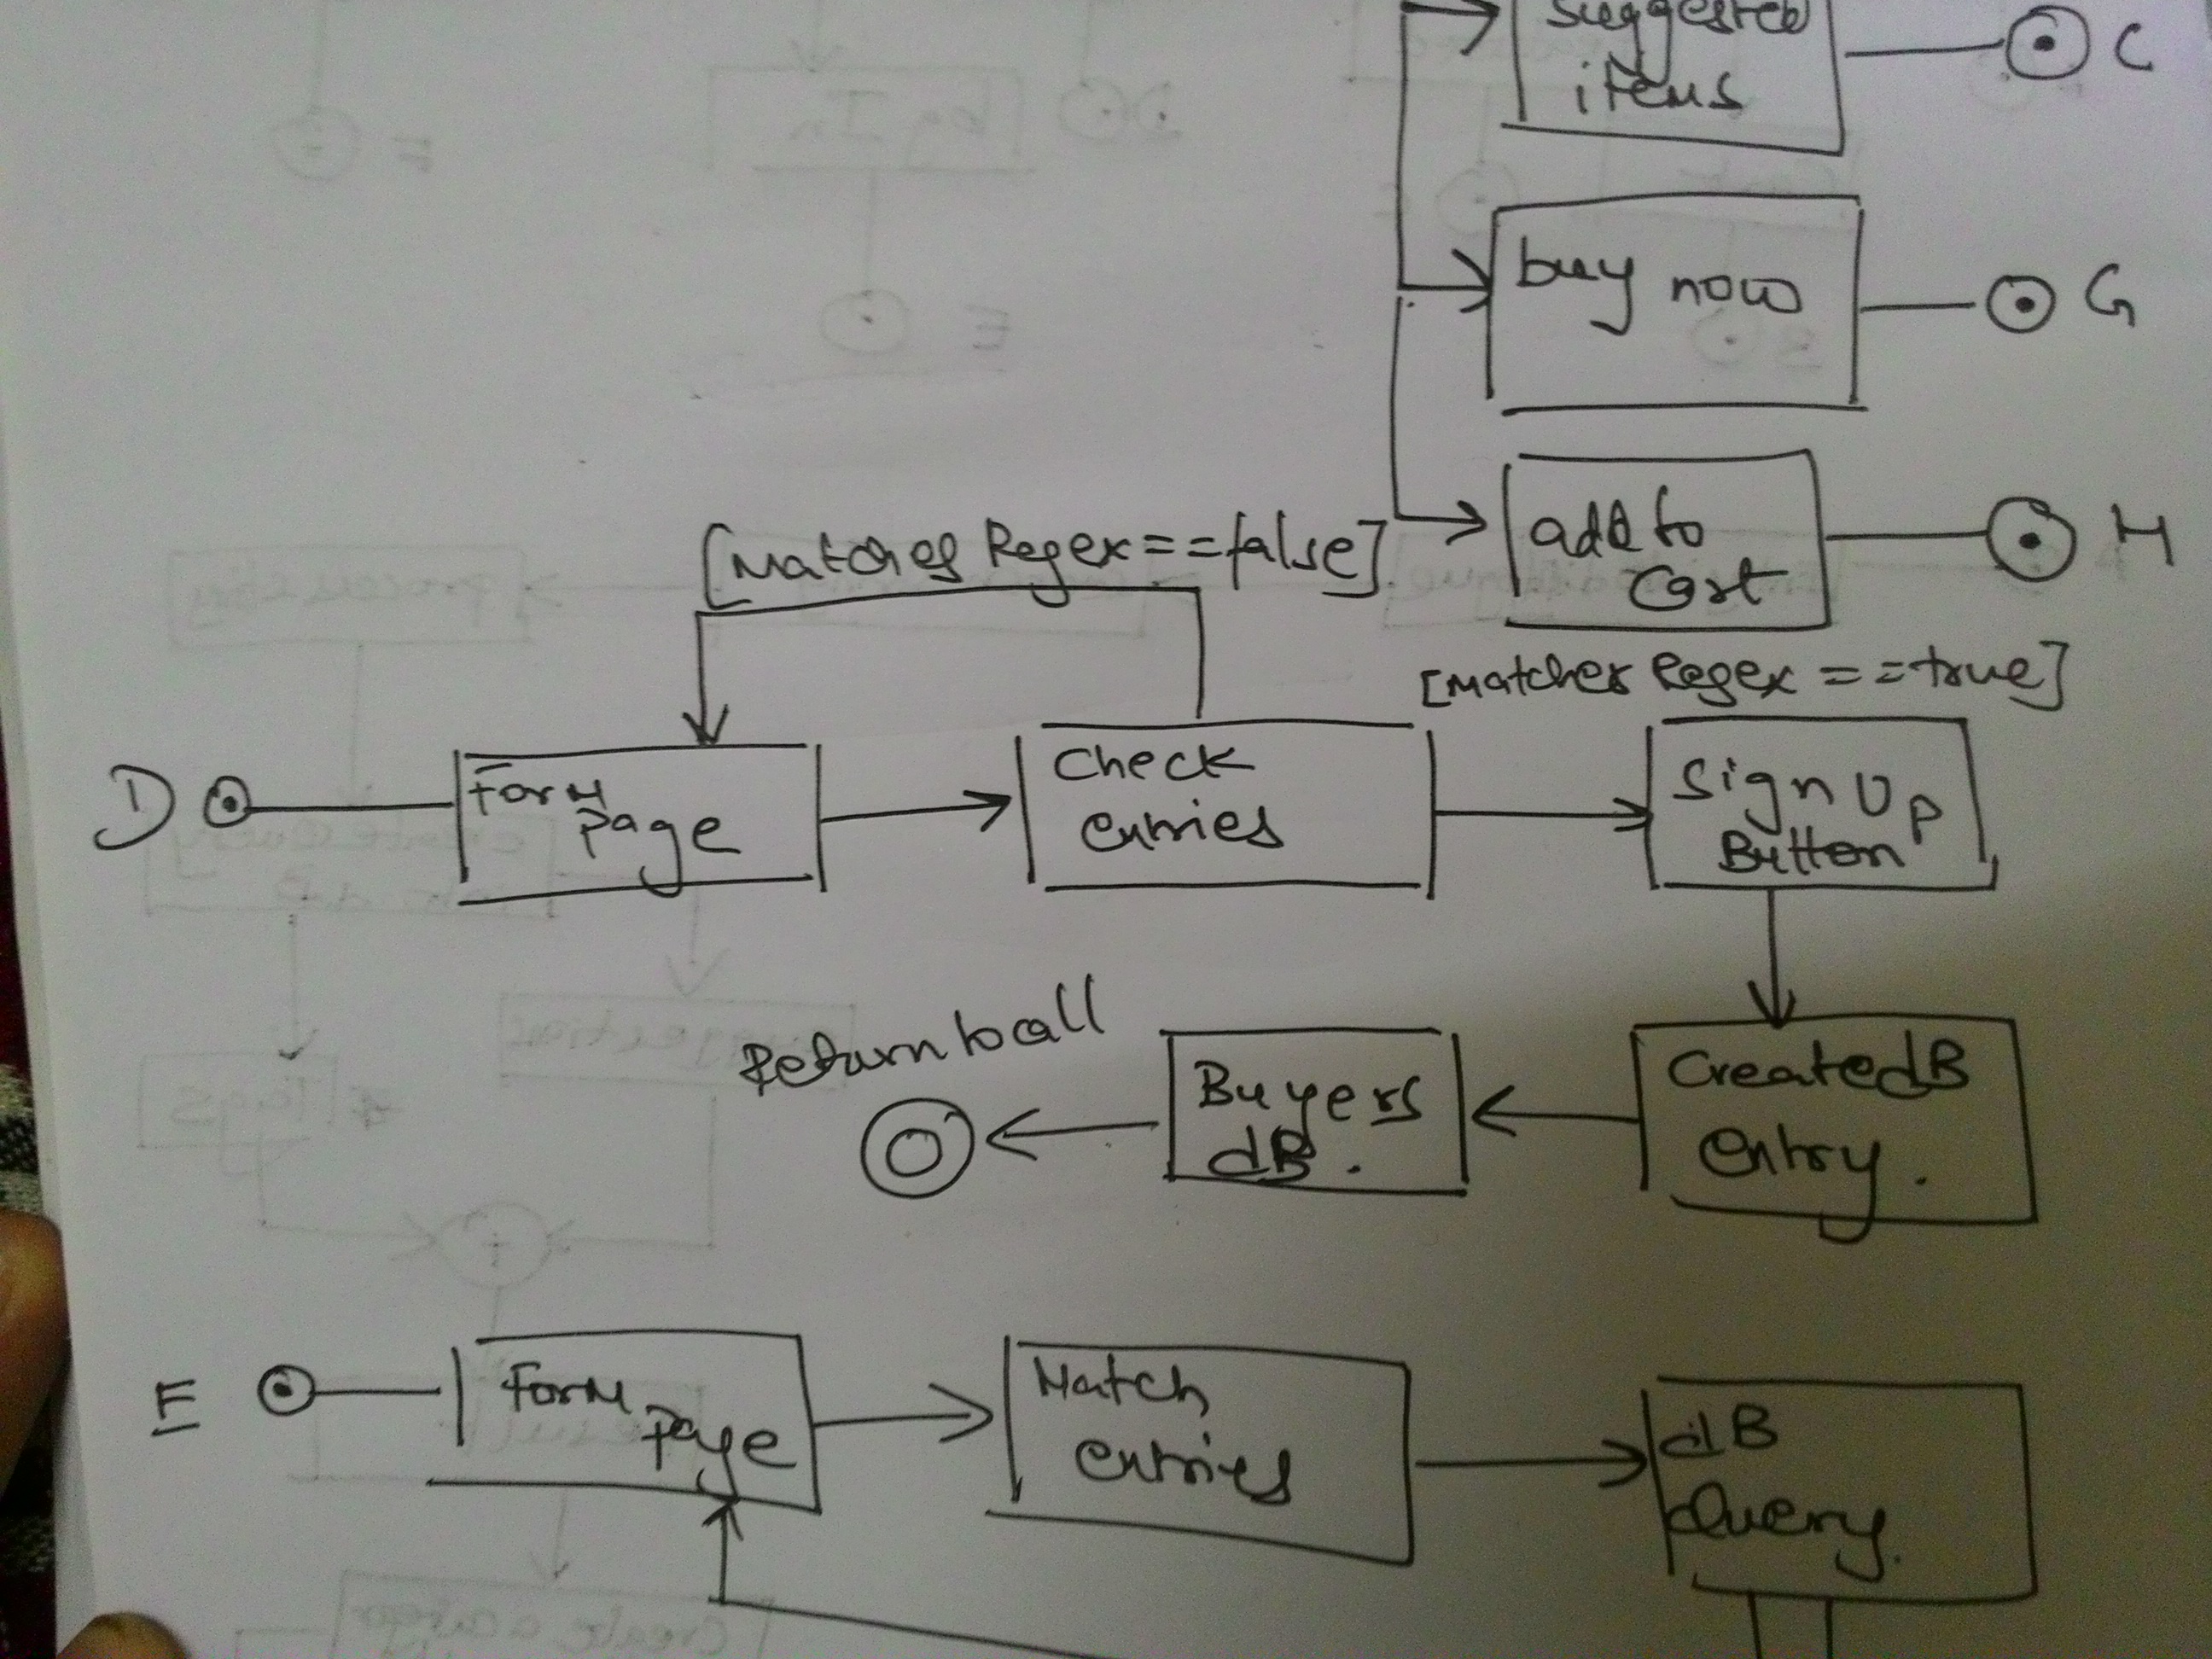 suggested
items
C
buy now
G
add to
Cart
H
[Matches Regex==false]
[Matches Regex ==true]
D
Form
Page
Check
entries
Sign Up
Button
Return to call
Buyers
dB.
Create dB
entry.
E
Form
Page
Match
entries
dB
Query.